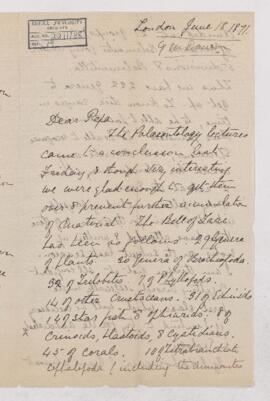 McGILL UNIVERSITY
ARCHIVES
ACC. NO.
London June 18, 1871.
G M Dawson
Dear Papa
The Palaeontology lectures
came to a conclusion last
Friday & though very interesting
we were glad enough to get them
over & prevent further accumulation
of material. The Bill of Fare
has been as follows 29 Genera
of Plants. 30 genera of Brachiopods.
32 of Trilobites 7 of Phyllopods.
14 of other Crustaceans. 31 of Echinids
14 of Star fish & Ophiurids. 18 of
Crinoids, Blastoids, & Cystidians.
45 of Corals. 10 of Tetrabranchiate
Cephalopoda, including the Ammonites